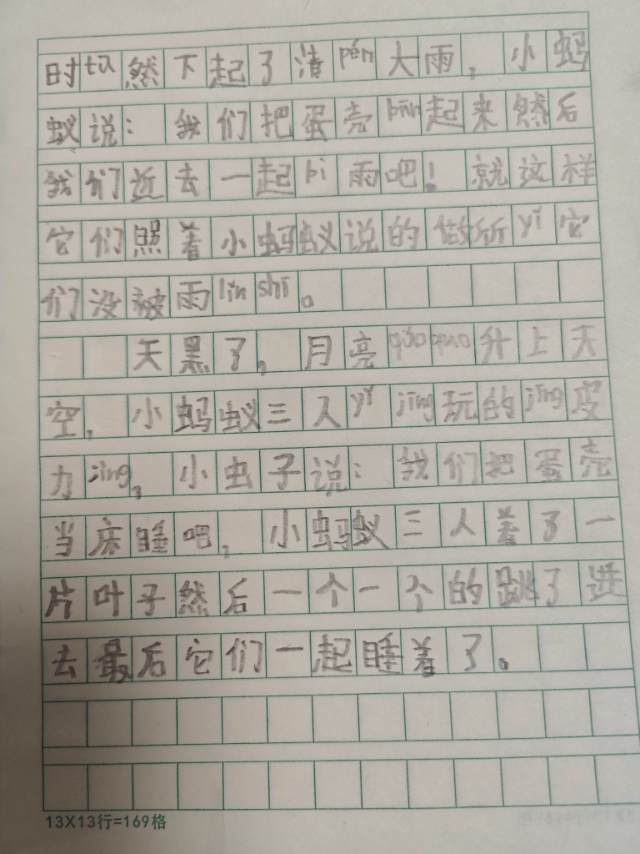 时tū然下起了清pén大雨，小蚂
蚁说：我们把蛋壳pīn起来然后
我们近去一起bì雨吧！就这样
它们照着小蚂蚁说的做所yǐ它
们没被雨lín shī。
天黑了，月亮qiāo qiāo升上天
空，小蚂蚁三人yǐ jīng玩的jīng皮
力jìng，小虫子说：我们把蛋壳
当床睡吧，小蚂蚁三人盖了一
片叶子然后一个一个的跳了进
去最后它们一起睡着了。
13X13行=169格